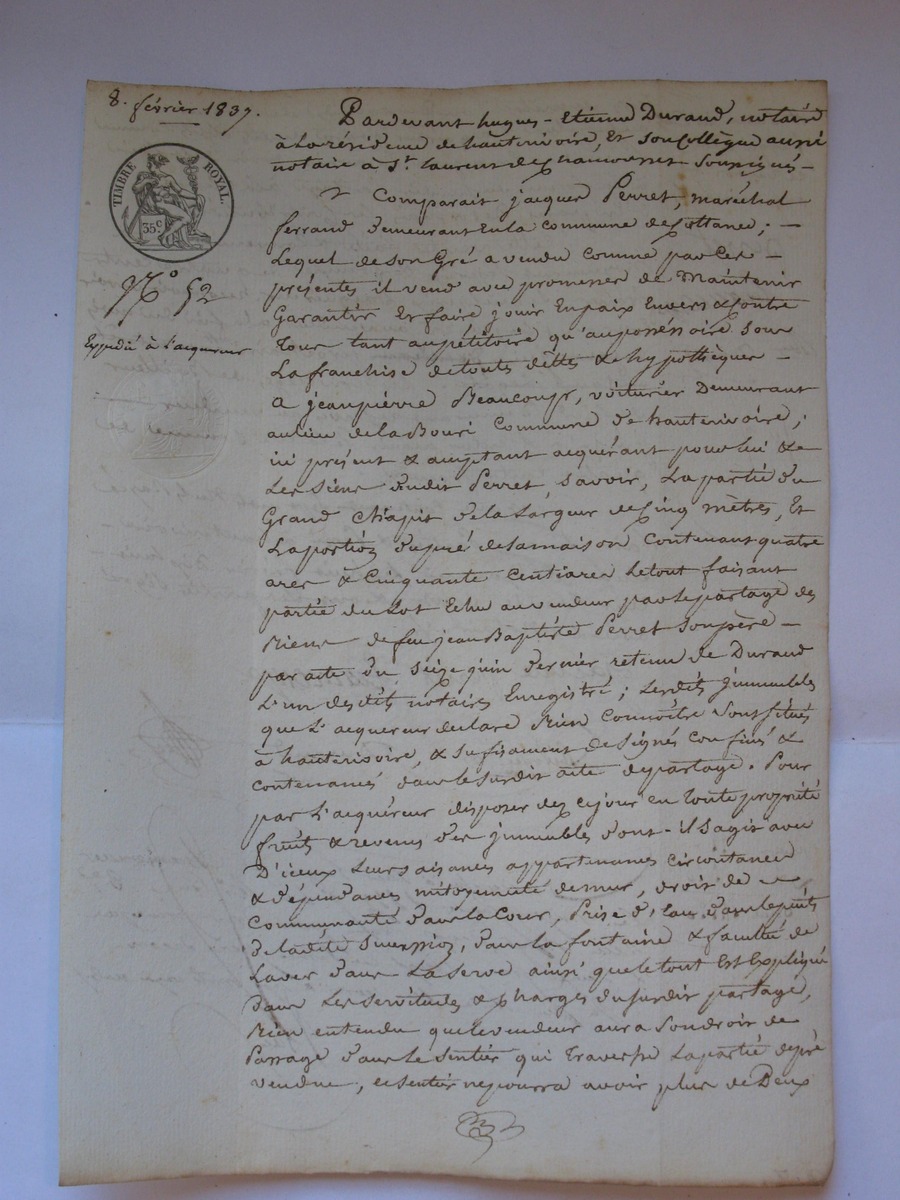 8. février 1837.
TIMBRE ROYAL.
35c
No 52
Expédié à l'acquéreur
Pardevant hugues-Etienne Durand, notaire
à La résidence de hauterivoire, Et son Collègue aussi
notaire à St. Laurent de Chamousset Soussignés —
Comparait jacques Perret, maréchal
ferrand demeurant En la commune de ; —
Lequel de son Gré a vendu comme par Ces —
présentes il vend avec promesse de Maintenir
Garantir Et faire jouir En paix Envers & Contre
Tous tant au pétitoire qu'au possessoire sous
La franchise de touts dettes & hypothèques —
a jeanpierre Beaucoup, voiturier Demeurant
au lieu de la Bouri Commune de hauterivoire ;
ici présent & acceptant acquérant pour lui & 
Les Siens dudit Perret, Savoir, La partie du
Grand Chapit de la Largeur de Cinq mètres, Et
La portion du pré de la maison Contenant quatre
ares & Cinquante Centiares Le tout faisant
partie du Lot Echu au vendeur par Le partage des
Biens de feu jean Baptiste Perret Son père —
par acte du Seize juin dernier retenu de Durand
L'un desdits notaires Enregistré ; Lesdits jmmeubles
que L'acquereur declare Bien Connoître Sont Situés
à hauterivoire, & Sufisament designés confinés &
contenancés dans le Susdit acte de partage. Pour
par L'acquéreur disposer dez ce jour en Toute propriété
fruits & revenus des jmmeubles dont-il s'agit avec
D'iceux Leurs aisances appartenances circonstances
& dépendances mitoyenneté de mur, droit de —
Communauté dans La Cour, Prise d'eau dans le puits
de ladite , dans La fontaine & faculté de
Laver dans La Serve ainsi que le tout Est Expliqué
Dans Les Servitudes & Charges du Susdit partage,
Bien entendu que le vendeur aura Son droit de
Passage dans Le Sentier qui Traverse La partie de pré
vendue, ce Sentier ne pourra avoir plus de Deux